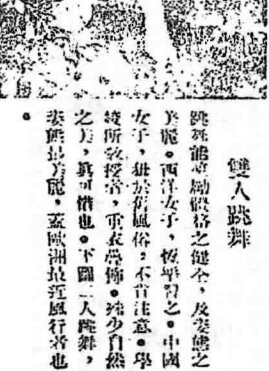 雙人跳舞
跳舞能勵體格之健全,及姿態之
美麗。西洋女子,恆學習之。中國
女子,狃於舊風俗,不肯注意。學
校所教授者,重衣飾。殊少自然
之美,眞可惜也。下圖二人跳舞,
姿態最美麗,蓋歐洲最近風行者也
。